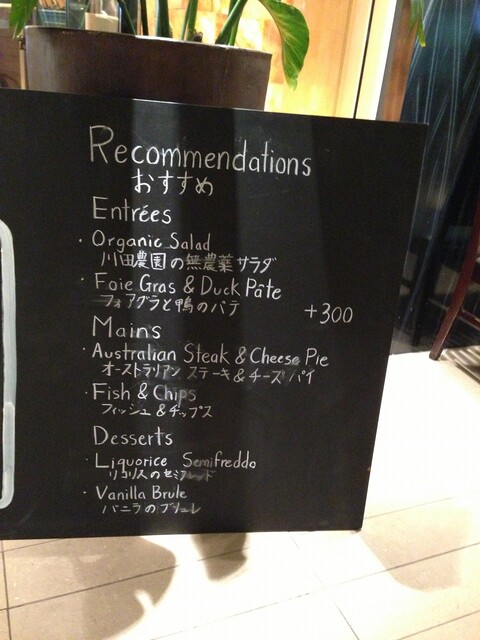 Recommendations
おすすめ
Entrées
・Organic Salad
川田農園の無農薬サラダ
・Foie Gras & Duck Pâte
フォアグラと鴨のパテ
+300
Mains
・Australian Steak & Cheese Pie
オーストラリアン ステーキ&チーズパイ
・Fish & Chips
フィッシュ&チップス
Desserts
・Liquorice Semifreddo
リコリスのセミフレッド
・Vanilla Brule
バニラのブリュレ